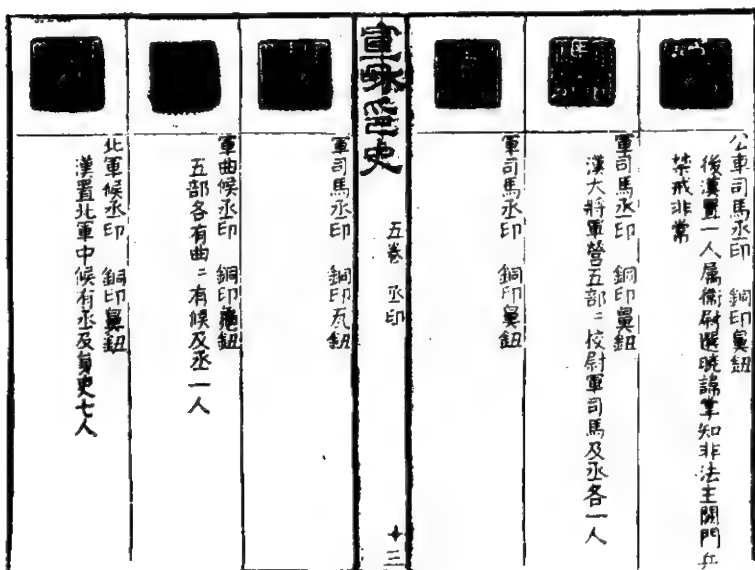 公車司馬丞印 銅印鼻鈕
後漢置一人屬衛尉選曉諱掌知非法主闕門兵
禁戒非常
軍司馬丞印 銅印鼻鈕
漢大將軍營五部二校尉軍司馬及丞各一人
軍司馬丞印 銅印鼻鈕
宣和印史
五卷 丞印
十三
軍司馬丞印 銅印瓦鈕
軍曲候丞印 銅印龜鈕
五部各有曲二有候及丞一人
北軍候丞印 銅印鼻鈕
漢置北軍中候有丞及員吏七人